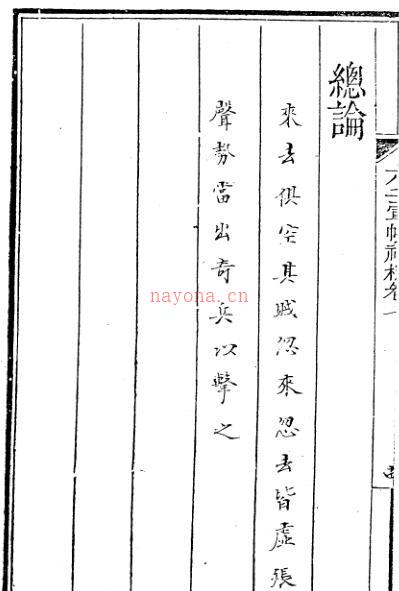 總論
來去俱空其賊忽來忽去皆虛張
聲勢當出奇兵以擊之
nayona.cn